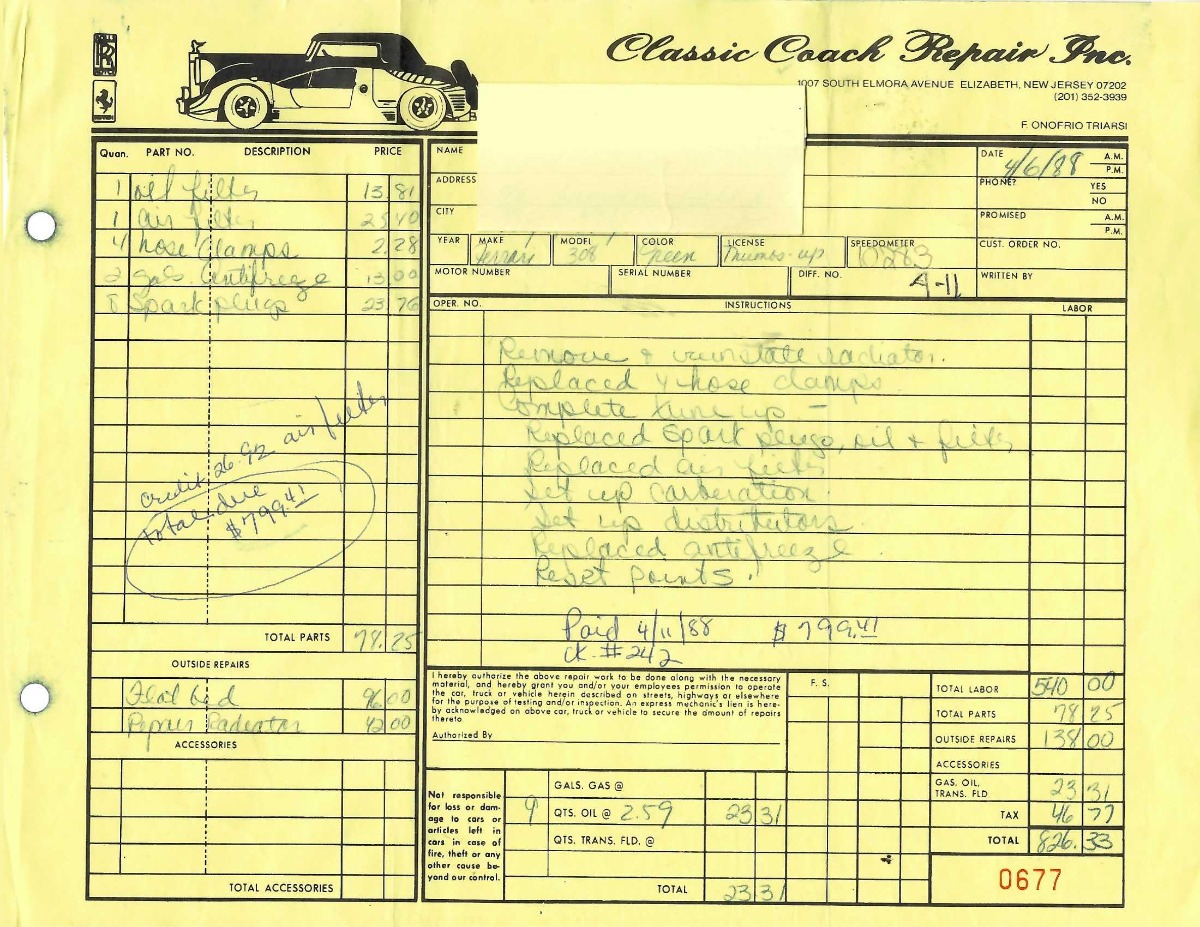 Classic Coach Repair Inc.
1007 SOUTH ELMORA AVENUE ELIZABETH, NEW JERSEY 07202
(201) 352-3939
F. ONOFRIO TRIARSI
Quan. PART NO. DESCRIPTION PRICE
1 oil filter 13.81
1 air filter 25.40
4 hose clamps 2.28
2 gals. Antifreeze 13.00
8 Spark plugs 23.76
credit 26.92 air filter
Total due
$799.41
TOTAL PARTS 78.25
OUTSIDE REPAIRS
Flat bed 96.00
Repair Radiator 42.00
ACCESSORIES
TOTAL ACCESSORIES
NAME
ADDRESS
CITY
DATE 4/6/88 A.M.
P.M.
PHONE? YES
NO
PROMISED A.M.
P.M.
YEAR MAKE MODEL COLOR LICENSE SPEEDOMETER CUST. ORDER NO.
Ferrari 308 Green Thumbs-up 10283
MOTOR NUMBER SERIAL NUMBER DIFF. NO. A-11 WRITTEN BY
OPER. NO. INSTRUCTIONS LABOR
Remove & reinstall radiator.
Replaced 4 hose clamps
Complete tune up -
Replaced Spark plugs, oil & filter
Replaced air filter
Set up Carberation.
Set up distributors
Replaced antifreeze.
Reset Points.
Paid 4/11/88 $799.41
CK. #242
I hereby authorize the above repair work to be done along with the necessary
material, and hereby grant you and/or your employees permission to operate
the car, truck or vehicle herein described on streets, highways or elsewhere
for the purpose of testing and/or inspection. An express mechanic's lien is here-
by acknowledged on above car, truck or vehicle to secure the amount of repairs
thereto
Authorized By
F. S.
TOTAL LABOR 540 00
TOTAL PARTS 78 25
OUTSIDE REPAIRS 138 00
ACCESSORIES
GAS, OIL, TRANS. FLD 23 31
TAX 46 77
TOTAL 826.33
Not responsible
for loss or dam-
age to cars or
articles left in
cars in case of
fire, theft or any
other cause be-
yond our control.
GALS. GAS @
9 QTS. OIL @ 2.59 23 31
QTS. TRANS. FLD. @
TOTAL 23 31
0677